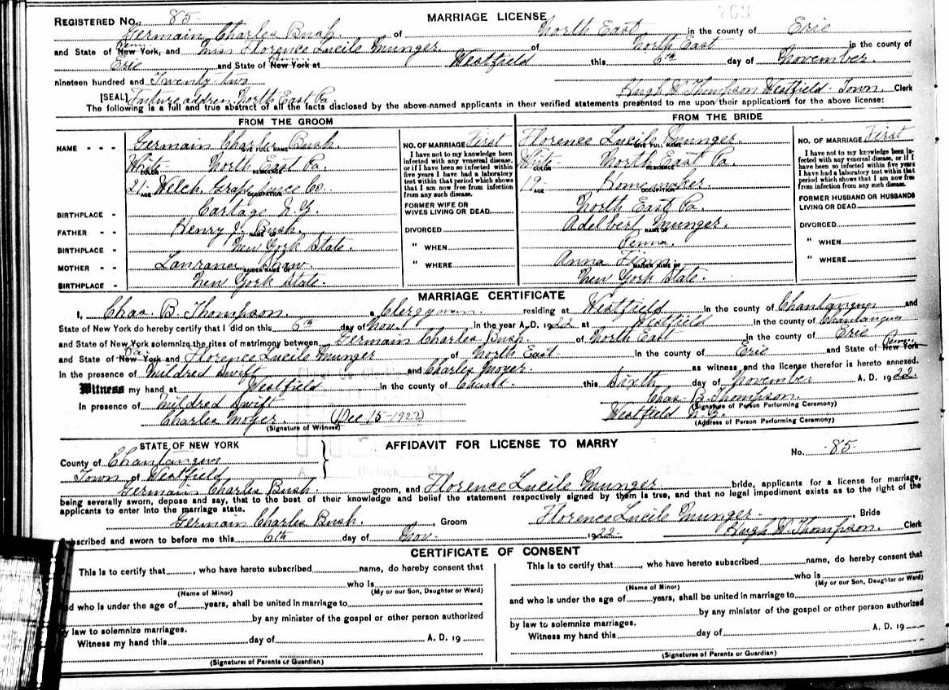 MARRIAGE LICENSE
REGISTERED No. 85
Germain Charles Bush of North East in the county of Erie
and State of New York, Penn. and Miss Florence Lucile Munger of North East in the county of
Erie and State of New York Penn. at Westfield this 6th day of November.
nineteen hundred and Twenty-two Hugh W. Thompson Westfield Town Clerk
[SEAL] address North East Pa.
The following is a full and true abstract of all the facts disclosed by the above-named applicants in their verified statements presented to me upon their applications for the above license:
FROM THE GROOM
NAME - - - Germain Charles Bush
FULL NAME
White North East Pa.
COLOR RESIDENCE
21 Welch Grape Juice Co.
AGE OCCUPATION
BIRTHPLACE - N.Y.
FATHER - - Henry J. Bush.
NAME OF
BIRTHPLACE - New York State.
MOTHER - - Shaw.
MAIDEN NAME OF
BIRTHPLACE - New York State.
NO. OF MARRIAGE First
I have not to my knowledge been
infected with any venereal disease,
or if I have been so infected within
five years I have had a laboratory
test within that period which shows
that I am now free from infection
from any such disease.
FORMER WIFE OR
WIVES LIVING OR DEAD
DIVORCED
" WHEN
" WHERE
FROM THE BRIDE
Florence Lucile Munger
FULL NAME
White North East Pa.
COLOR RESIDENCE
19 Home
AGE OCCUPATION
North East Pa.
Adelbert Munger.
NAME OF
Penna.
Anna
MAIDEN NAME OF
New York State.
NO. OF MARRIAGE First
I have not to my knowledge been infected with any venereal disease, or if I have been so infected within five years I have had a laboratory test within that period which shows that I am now free from infection from any such disease.
FORMER HUSBAND OR HUSBANDS
LIVING OR DEAD
DIVORCED
" WHEN
" WHERE
MARRIAGE CERTIFICATE
I, Chas. B. Thompson, a Clergyman residing at Westfield in the county of Chautauqua and
State of New York do hereby certify that I did on this 6th day of Nov. in the year A. D. 1922 at Westfield in the county of Chautauqua
and State of New York solemnize the rites of matrimony between Germain Charles Bush of North East in the county of Erie
and State of New York Pa. and Florence Lucile Munger of North East in the county of Erie and State of New York Penn.
In the presence of Mildred Swift and Charles Moyer. as witness, and the license therefor is hereto annexed.
Witness my hand at Westfield in the county of Chaut. this Sixth day of November A. D. 1922
In presence of Mildred Swift Chas. B. Thompson
(Signature of Person Performing Ceremony)
Charles Moyer (Dec 15-1922) Westfield N.Y.
(Signature of Witness) (Address of Person Performing Ceremony)
STATE OF NEW YORK
AFFIDAVIT FOR LICENSE TO MARRY
No. 85
County of Chautauqua
Town of Westfield
Germain Charles Bush groom, and Florence Lucile Munger bride, applicants for a license for marriage,
being severally sworn, depose and say, that to the best of their knowledge and belief the statement respectively signed by them is true, and that no legal impediment exists as to the right of the
applicants to enter into the marriage state.
Germain Charles Bush, Groom Florence Lucile Munger, Bride
Subscribed and sworn to before me this 6th day of Nov. 1922. Hugh W. Thompson, Clerk
CERTIFICATE OF CONSENT
This is to certify that , who have hereto subscribed name, do hereby consent
that who is
(Name of Minor) (My or our Son, Daughter or Ward)
and who is under the age of years, shall be united in marriage to
by any minister of the gospel or other person authorized
by law to solemnize marriages.
Witness my hand this day of A. D. 19
(Signatures of Parents or Guardian)
This is to certify that , who have hereto subscribed name, do hereby consent
that who is
(Name of Minor) (My or our Son, Daughter or Ward)
and who is under the age of years, shall be united in marriage to
by any minister of the gospel or other person authorized
by law to solemnize marriages.
Witness my hand this day of A. D. 19
(Signatures of Parents or Guardian)